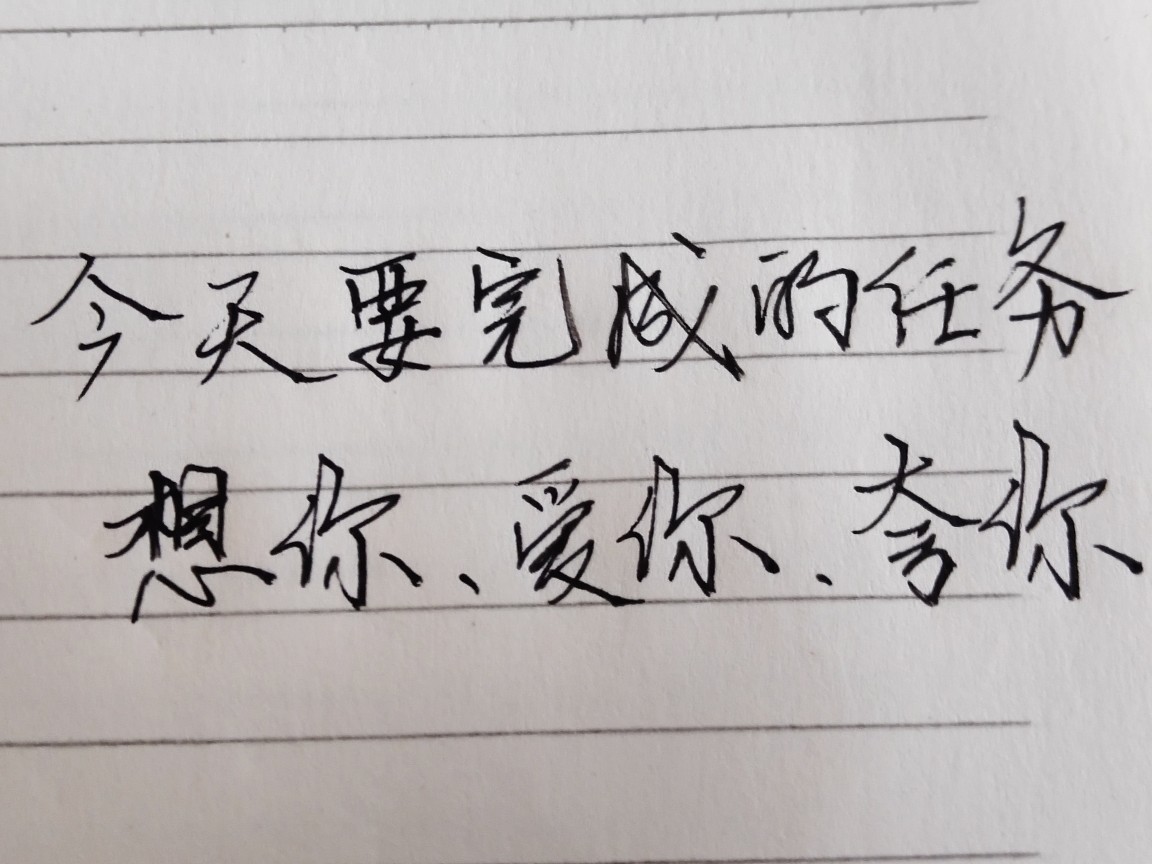 今天要完成的任务
想你、爱你、夸你